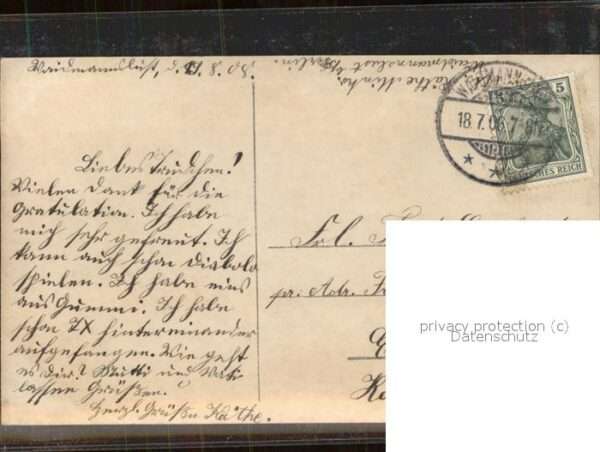 Waidmannslust, d. 17. 8. 08.
Käthe
Waidmannslust b/
Berlin.
Liebes Trudchen!
Vielen Dank für die
Gratulation. Ich habe
mich sehr gefreut. Ich
kann auch schon Diabolo
spielen. Ich habe eins
aus Gummi. Ich habe
schon IX hintereinander
aufgefangen. Wie geht
es dir? Mutti und Vati
lassen Grüßen.
Herzl. Grüße Käthe.
18.7.08.7-8
5
DEUTSCHES REICH
Frl.
pr. Adr.
privacy protection (c)
Datenschutz